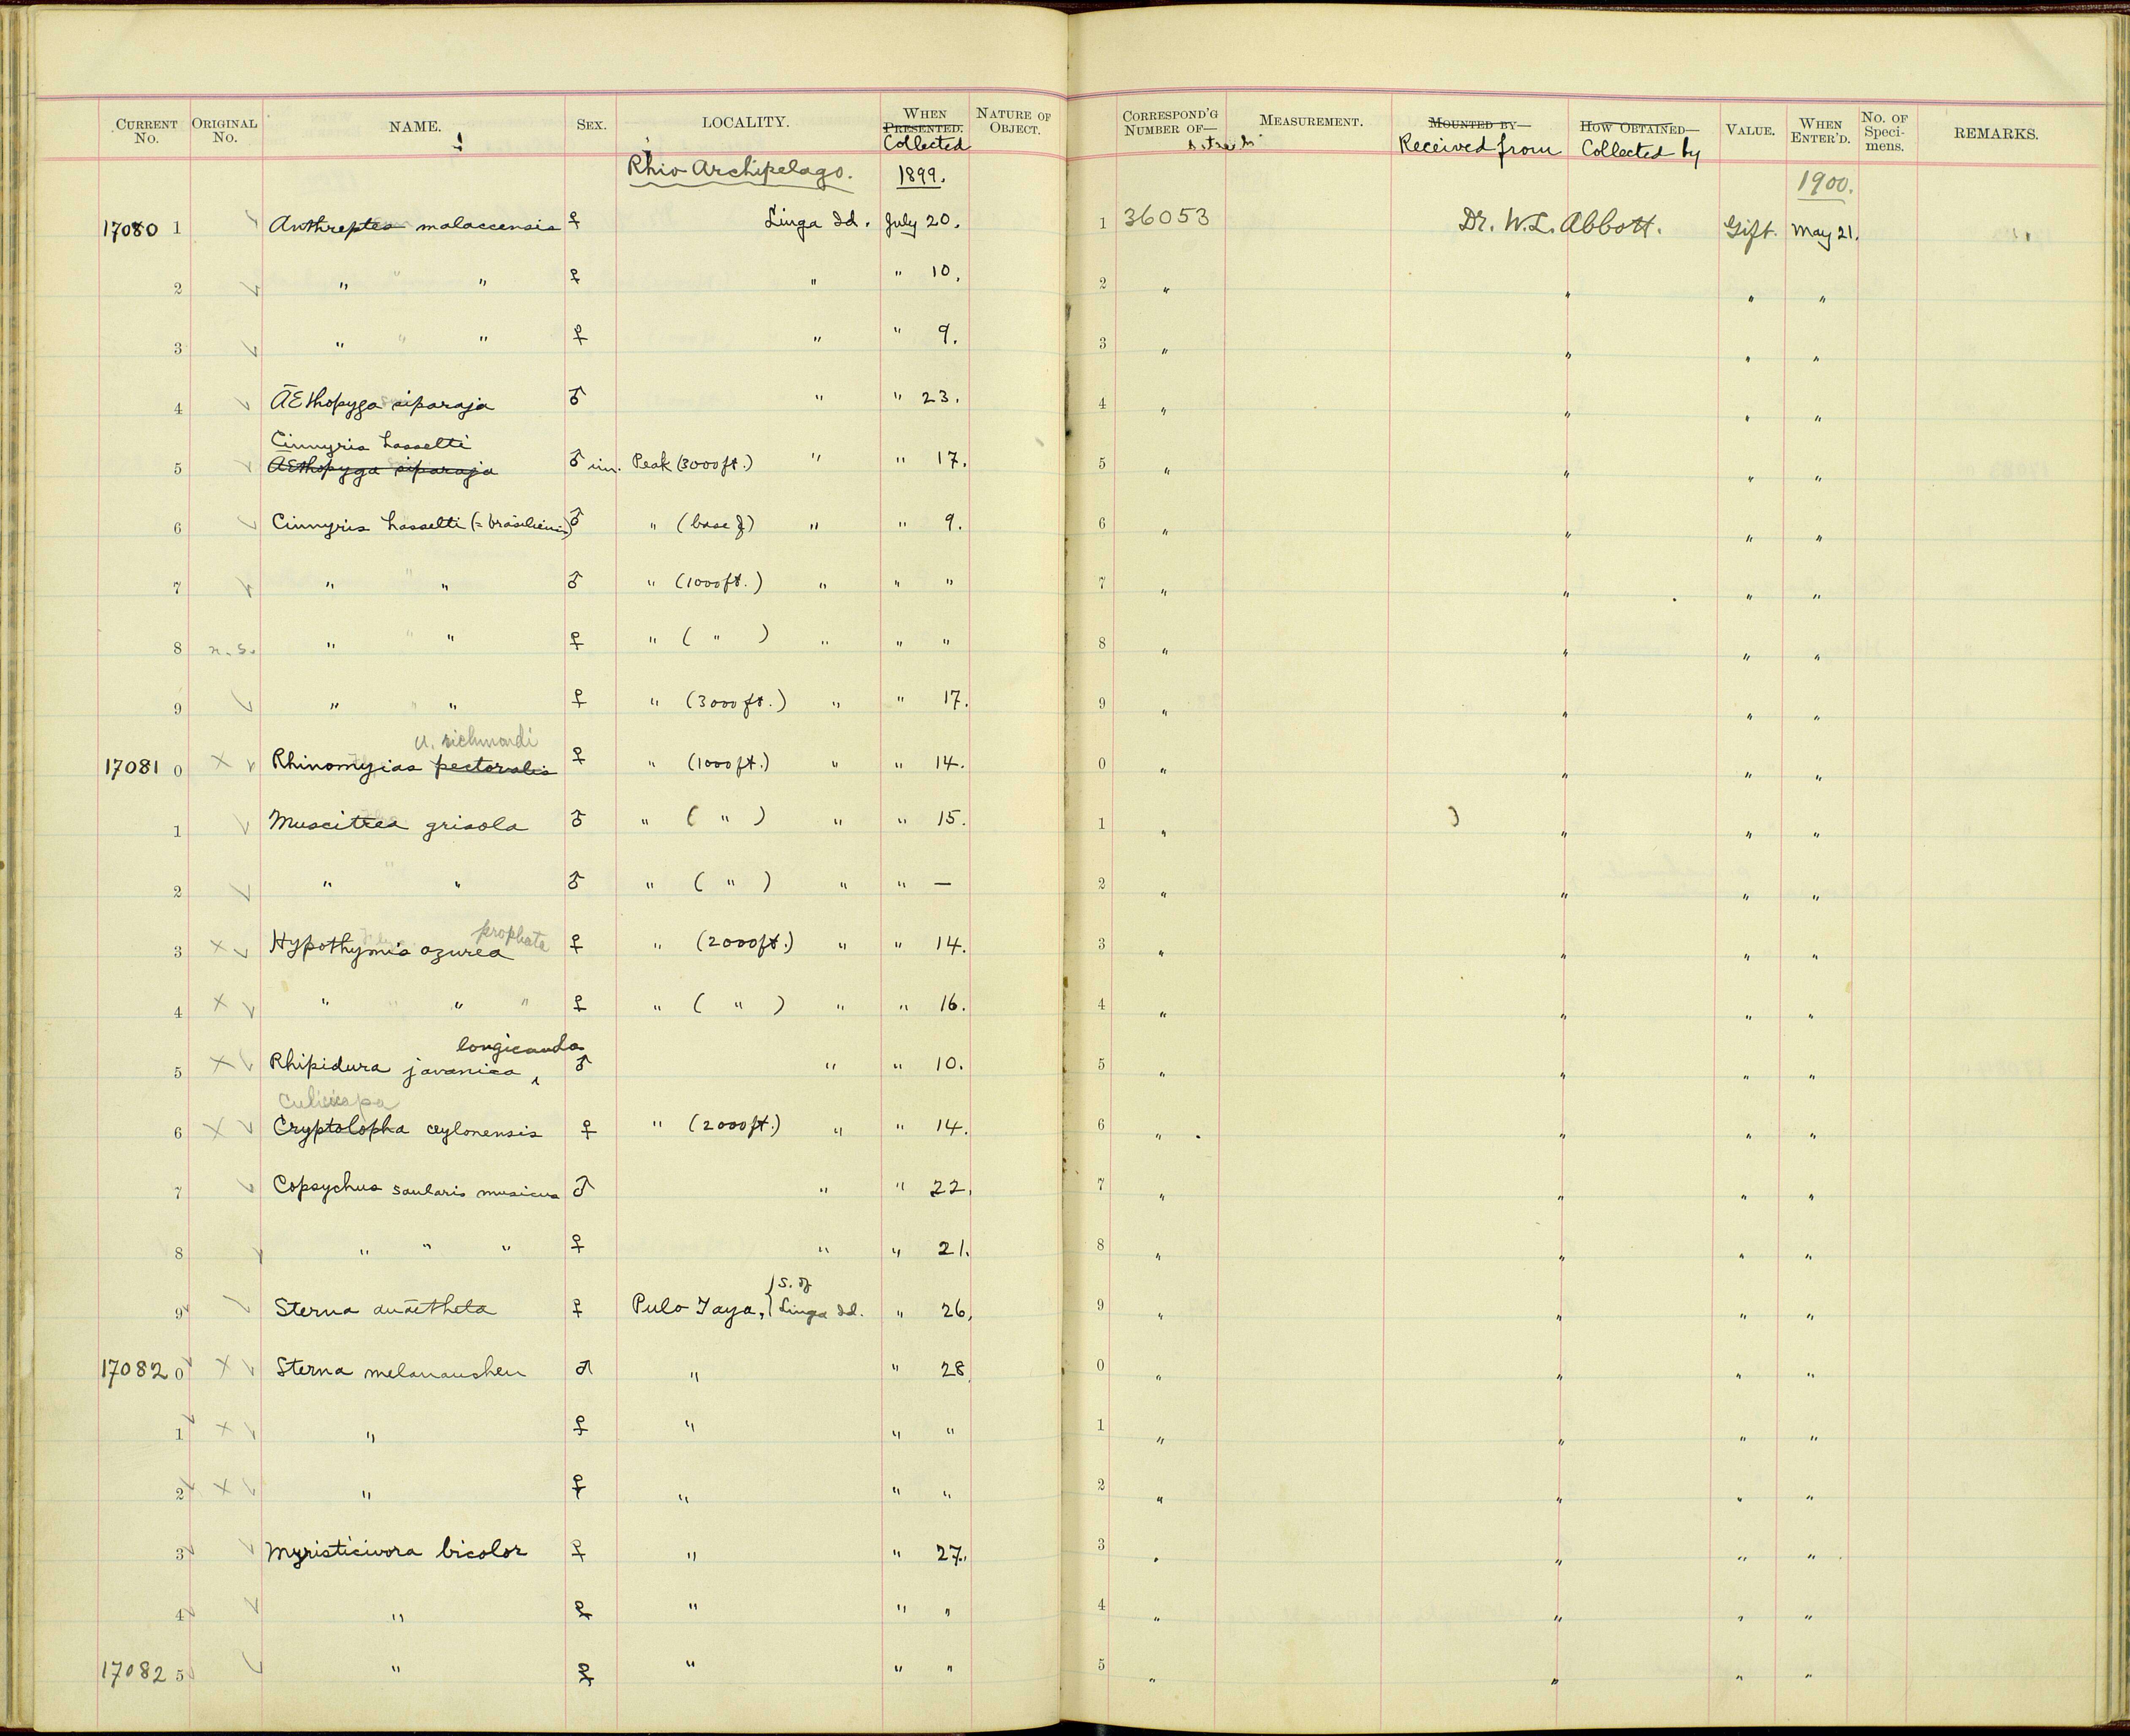 CURRENT No. ORIGINAL No. NAME. SEX. LOCALITY. WHEN PRESENTED. Collected NATURE OF OBJECT. CORRESPOND'G NUMBER OF— MEASUREMENT. MOUNTED BY— Received from HOW OBTAINED— Collected by VALUE. WHEN ENTER'D. No. OF Specimens. REMARKS.
Rhio Archipelago. 1899. 1900.
17080 1 Anthreptes malaccensis ♀ Linga Id. July 20. 1 36053 Dr. W.L. Abbott. Gift. May 21.
2 " " " ♀ " " 10. 2 " " " "
3 " " " ♀ " " 9. 3 " " " "
4 Æthopyga siparaja ♂ " " 23. 4 " " " "
Cinnyris hasselti
5 Æthopyga siparaja ♂ im. Peak (3000 ft.) " " 17. 5 " " " "
6 Cinnyris hasselti (= brasiliensis) ♂ " (base of) " " 9. 6 " " " "
7 " " " ♂ " (1000 ft.) " " " 7 " " " "
8 n.s. " " " ♀ " ( " ) " " " 8 " " " "
9 " " " ♀ " (3000 ft.) " " 17. 9 " " " "
u. richmondi
17081 0 × Rhinomyias pectoralis ♀ " (1000 ft.) " " 14. 0 " " " "
1 Muscitrea grisola ♂ " ( " ) " " 15. 1 " " " "
2 " " " ♂ " ( " ) " " — 2 " " " "
prophata
3 × Hypothymis azurea ♀ " (2000 ft.) " " 14. 3 " " " "
4 × " " " " ♀ " ( " ) " " 16. 4 " " " "
longicauda
5 × Rhipidura javanica ‸ ♂ " " 10. 5 " " " "
Culicicapa
6 × Cryptolopha ceylonensis ♀ " (2000 ft.) " " 14. 6 " " " "
7 Copsychus saularis musicus ♂ " " 22. 7 " " " "
8 " " " ♀ " " 21. 8 " " " "
9 Sterna anætheta ♀ Pulo Taya, { S. of Linga Id. " 26. 9 " " " "
17082 0 × Sterna melanauchen ♂ " " 28 0 " " " "
1 × " ♀ " " " 1 " " " "
2 × " ♀ " " " 2 " " " "
3 Myristicivora bicolor ♀ " " 27. 3 " " " "
4 " ♀ " " " 4 " " " "
17082 5 " ♀ " " " 5 " " " "